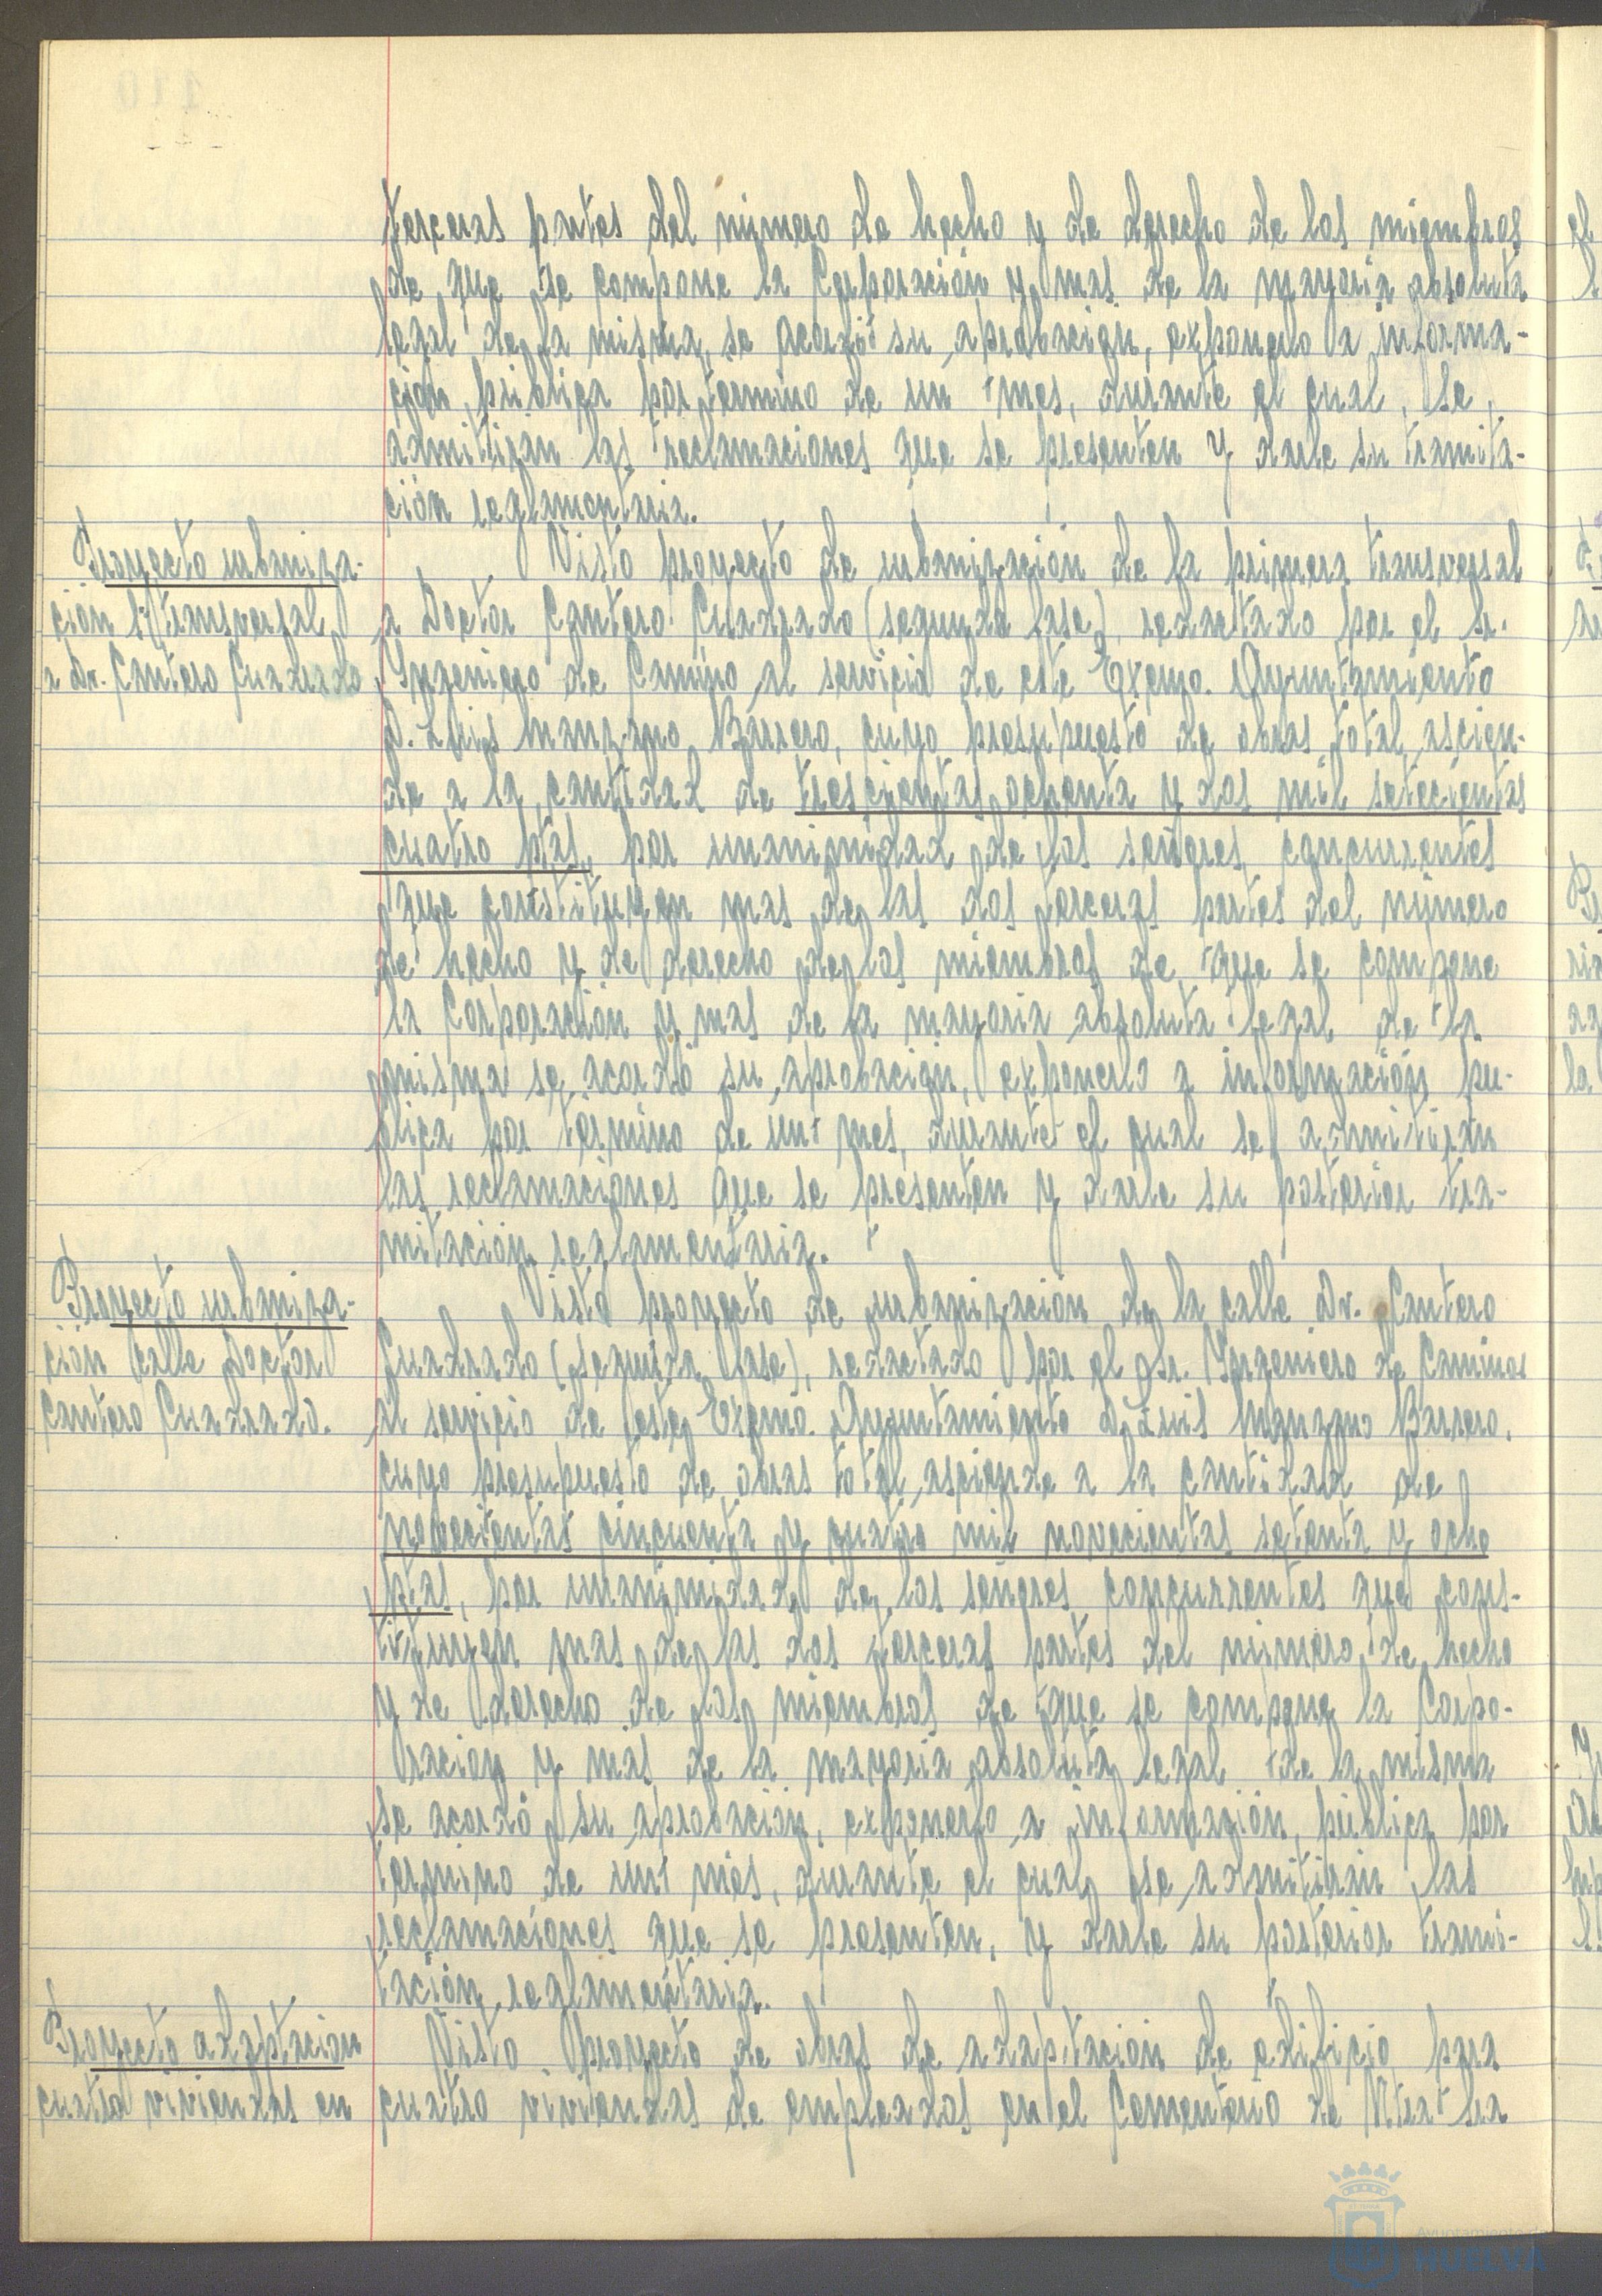 terceras partes del número de hecho y de derecho de los miembros
de que se compone la Corporación y mas de la mayoria absoluta
legal de la misma, se acordó su aprobación, exponerlo a informa-
ción publica por termino de un mes, durante el cual, se
admitiran las reclamaciones que se presenten y darle su tramita-
ción reglamentaria.
Proyecto urbaniza-
ción 1ª transversal
a Dr. Cantero Cuadrado
Visto proyecto de urbanización de la primera transversal
a Doctor Cantero Cuadrado (segunda fase), redactado por el Sr.
Ingeniero de Camino al servicio de este Excmo. Ayuntamiento
D. Luis Manzano Barrero, cuyo presupuesto de obras total ascien-
de a la cantidad de trescientas ochenta y dos mil setecientas
cuatro ptas, por unanimidad de los señores concurrentes
que constituyen mas de las dos terceras partes del número
de hecho y de derecho de los miembros de que se compone
la Corporación y mas de la mayoria absoluta legal de la
misma se acordó su aprobación, exponerlo a información pu-
blica por termino de un mes, durante el cual se admitirán
las reclamaciones que se presenten y darle su posterior tra-
mitación reglamentaria.
Proyecto urbaniza-
ción calle Doctor
Cantero Cuadrado.
Visto proyecto de urbanización de la calle Dr. Cantero
Cuadrado (segunda fase), redactado por el Sr. Ingeniero de Caminos
al servicio de este Excmo. Ayuntamiento D. Luis Manzano Barrero,
cuyo presupuesto de obras total asciende a la cantidad de
novecientas cincuenta y cuatro mil novecientas setenta y ocho
ptas, por unanimidad de los señores concurrentes que cons-
tituyen mas de las dos terceras partes del número de hecho
y de derecho de los miembros de que se compone la Corpo-
racion y mas de la mayoria absoluta legal de la misma
se acordó su aprobación, exponerlo a información, pública por
termino de un mes, durante el cual se admitirán las
reclamaciones que se presenten, y darle su posterior trami-
tación reglamentaria.
Proyecto adaptacion
cuatro viviendas en
Visto proyecto de obras de adaptación de edificio para
cuatro viviendas de empleados en el Cementerio de Ntra Sra
Ayuntamiento de
HUELVA